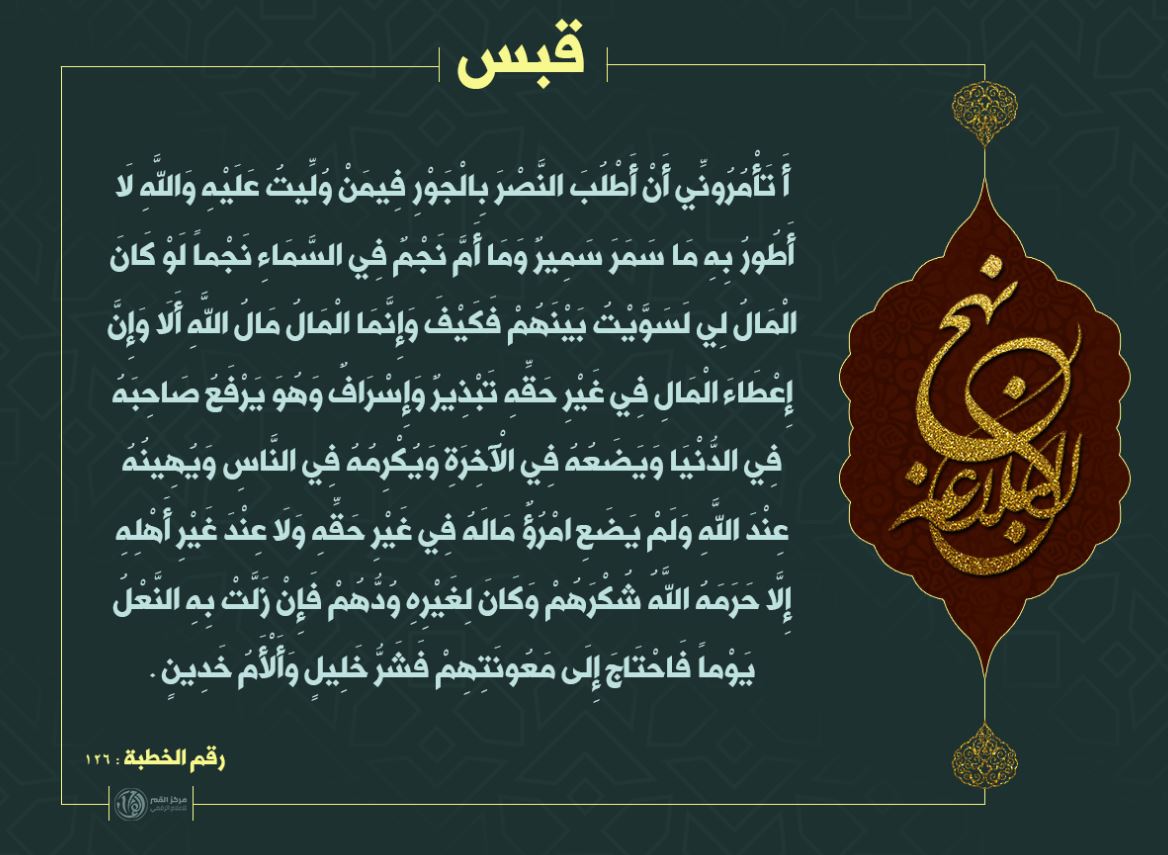 قبس
أَ تَأْمُرُونِّي أَنْ أَطْلُبَ النَّصْرَ بِالْجَوْرِ فِيمَنْ وُلِّيتُ عَلَيْهِ وَاللَّهِ لَا
أَطُورُ بِهِ مَا سَمَرَ سَمِيرٌ وَمَا أَمَّ نَجْمٌ فِي السَّمَاءِ نَجْماً لَوْ كَانَ
الْمَالُ لِي لَسَوَّيْتُ بَيْنَهُمْ فَكَيْفَ وَإِنَّمَا الْمَالُ مَالُ اللَّهِ أَلَا وَإِنَّ
إِعْطَاءَ الْمَالِ فِي غَيْرِ حَقِّهِ تَبْذِيرٌ وَإِسْرَافٌ وَهُوَ يَرْفَعُ صَاحِبَهُ
فِي الدُّنْيَا وَيَضَعُهُ فِي الْآخِرَةِ وَيُكْرِمُهُ فِي النَّاسِ وَيُهِينُهُ
عِنْدَ اللَّهِ وَلَمْ يَضَعِ امْرُؤٌ مَالَهُ فِي غَيْرِ حَقِّهِ وَلَا عِنْدَ غَيْرِ أَهْلِهِ
إِلَّا حَرَمَهُ اللَّهُ شُكْرَهُمْ وَكَانَ لِغَيْرِهِ وُدُّهُمْ فَإِنْ زَلَّتْ بِهِ النَّعْلُ
يَوْماً فَاحْتَاجَ إِلَى مَعُونَتِهِمْ فَشَرُّ خَلِيلٍ وَأَلْأَمُ خَدِينٍ .
نهج
البلاغة
رقم الخطبة : ١٢٦
مركز القمر
للاعلام الرقمي